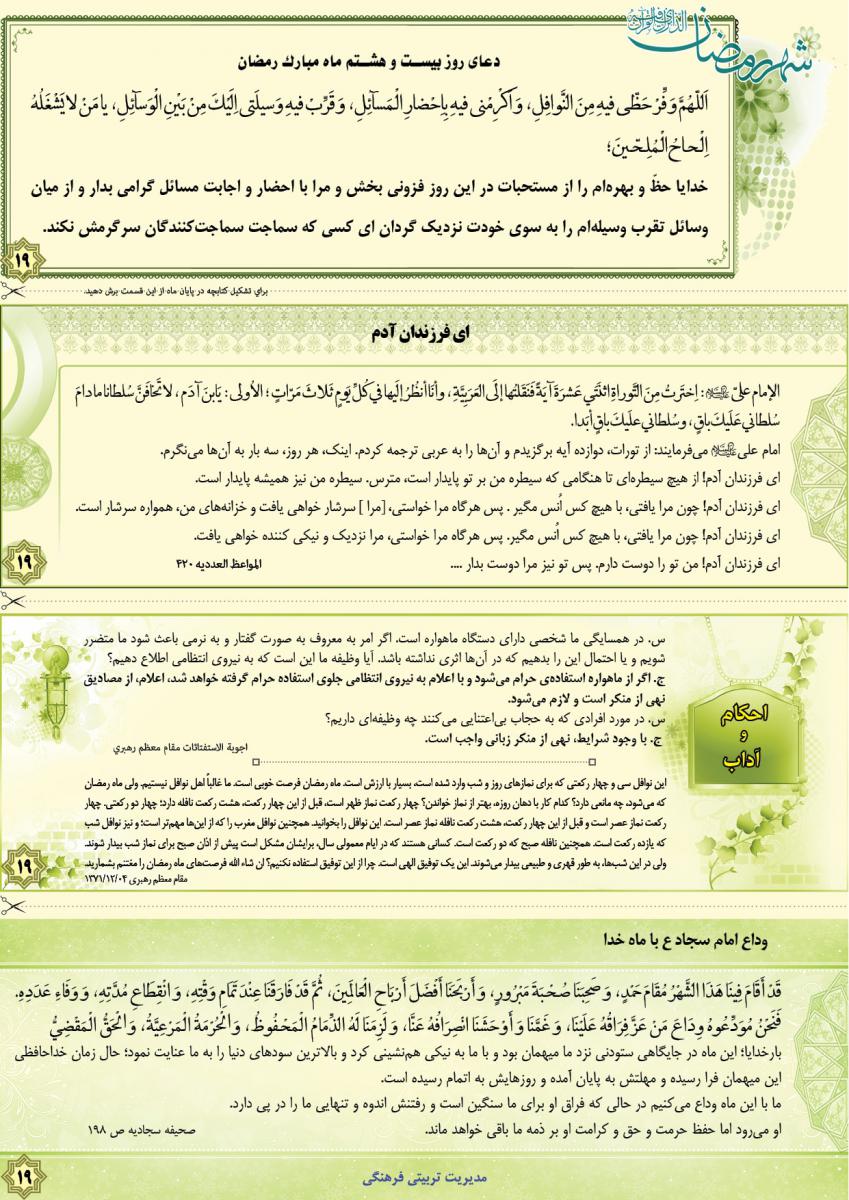 شهر رمضان
دعای روز بیست و هشتم ماه مبارک رمضان
اَللّهُمَّ وَفِّرْ حَظّی فیهِ مِنَ النَّوافِلِ، وَاَکْرِمْنی فیهِ بِاِحْضارِ الْمَسآئِلِ، وَ قَرِّبْ فیهِ وَسیلَتی اِلَیْکَ مِنْ بَیْنِ الْوَسآئِلِ، یا مَنْ لا یَشْغَلُهُ
اِلْحاحُ الْمُلِحّینَ؛
خدایا حظّ و بهره‌ام را از مستحبات در این روز فزونی بخش و مرا با احضار و اجابت مسائل گرامی بدار و از میان
وسائل تقرب وسیله‌ام را به سوی خودت نزدیک گردان ای کسی که سماجت سماجت‌کنندگان سرگرمش نکند.
۱۹
برای تشکیل کتابچه در پایان ماه از این قسمت برش دهید.
ای فرزندان آدم
الإمام علیّ علیه‌السلام: اِختَرتُ مِنَ التَّوراةِ اثنَتَي عَشرَةَ آيَةً فَنَقَلتُها إلَى العَرَبِيَّةِ، وأنَا أنظُرُ إلَيها في كُلِّ يَومٍ ثَلاثَ مَرّاتٍ؛ الأولى: يَابنَ آدَمَ، لا تَخافَنَّ سُلطاناً ما دامَ
سُلطاني عَلَيكَ باقٍ، وسُلطاني عليكَ باقٍ أبَداً.
امام علی علیه‌السلام می‌فرمایند: از تورات، دوازده آیه برگزیدم و آن‌ها را به عربی ترجمه کردم. اینک، هر روز، سه بار به آن‌ها می‌نگرم.
ای فرزندان آدم! از هیچ سیطره‌ای تا هنگامی که سیطره من بر تو پایدار است، مترس. سیطره من نیز همیشه پایدار است.
ای فرزندان آدم! چون مرا یافتی، با هیچ کس اُنس مگیر . پس هرگاه مرا خواستی، [مرا ] سرشار خواهی یافت و خزانه‌های من، همواره سرشار است.
ای فرزندان آدم! چون مرا یافتی، با هیچ کس اُنس مگیر. پس هرگاه مرا خواستی، مرا نزدیک و نیکی کننده خواهی یافت.
ای فرزندان آدم! من تو را دوست دارم. پس تو نیز مرا دوست بدار ....
المواعظ العددیه ۴۲۰
۱۹
احکام
و
آداب
س. در همسایگی ما شخصی دارای دستگاه ماهواره است. اگر امر به معروف به صورت گفتار و به نرمی باعث شود ما متضرر
شویم و یا احتمال این را بدهیم که در آن‌ها اثری نداشته باشد. آیا وظیفه ما این است که به نیروی انتظامی اطلاع دهیم؟
ج. اگر از ماهواره استفاده‌ی حرام می‌شود و با اعلام به نیروی انتظامی جلوی استفاده حرام گرفته خواهد شد، اعلام، از مصادیق
نهی از منکر است و لازم می‌شود.
س. در مورد افرادی که به حجاب بی‌اعتنایی می‌کنند چه وظیفه‌ای داریم؟
ج. با وجود شرایط، نهی از منکر زبانی واجب است.
اجوبة الاستفتائات مقام معظم رهبري
این نوافل سی و چهار رکعتی که برای نمازهای روز و شب وارد شده است، بسیار با ارزش است. ماه رمضان فرصت خوبی است. ما غالباً اهل نوافل نیستیم. ولی ماه رمضان
که می‌شود، چه مانعی دارد؟ کدام کار با دهان روزه، بهتر از نماز خواندن؟ چهار رکعت نماز ظهر است، قبل از این چهار رکعت، هشت رکعت نافله دارد؛ چهار دو رکعتی. چهار
رکعت نماز عصر است و قبل از این چهار رکعت، هشت رکعت نافله نماز عصر است. این نوافل را بخوانید. همچنین نوافل مغرب را که از این‌ها مهم‌تر است؛ و نیز نوافل شب
که یازده رکعت است. همچنین نافله صبح که دو رکعت است. کسانی هستند که در ایام معمولی سال، برایشان مشکل است پیش از اذان صبح برای نماز شب بیدار شوند.
ولی در این شب‌ها، به طور قهری و طبیعی بیدار می‌شوند. این یک توفیق الهی است. چرا از این توفیق استفاده نکنیم؟ ان شاء الله فرصت‌های ماه رمضان را مغتنم بشمارید.
مقام معظم رهبری ۱۳۷۱/۱۲/۰۴
۱۹
وداع امام سجاد ع با ماه خدا
قَدْ أَقَامَ فِينَا هَذَا الشَّهْرُ مُقَامَ حَمْدٍ، وَ صَحِبَنَا صُحْبَةَ مَبْرُورٍ، وَ أَرْبَحَنَا أَفْضَلَ أَرْبَاحِ الْعَالَمِينَ، ثُمَّ قَدْ فَارَقَنَا عِنْدَ تَمَامِ وَقْتِهِ، وَ انْقِطَاعِ مُدَّتِهِ، وَ وَفَاءِ عَدَدِهِ.
فَنَحْنُ مُوَدِّعُوهُ وِدَاعَ مَنْ عَزَّ فِرَاقُهُ عَلَيْنَا، وَ غَمَّنَا وَ أَوْحَشَنَا انْصِرَافُهُ عَنَّا، وَ لَزِمَنَا لَهُ الذِّمَامُ الْمَحْفُوظُ، وَ الْحُرْمَةُ الْمَرْعِيَّةُ، وَ الْحَقُّ الْمَقْضِيُّ
بارخدایا؛ این ماه در جایگاهی ستودنی نزد ما میهمان بود و با ما به نیکی هم‌نشینی کرد و بالاترین سودهای دنیا را به ما عنایت نمود؛ حال زمان خداحافظی
این میهمان فرا رسیده و مهلتش به پایان آمده و روزهایش به اتمام رسیده است.
ما با این ماه وداع می‌کنیم در حالی که فراق او برای ما سنگین است و رفتنش اندوه و تنهایی ما را در پی دارد.
او می‌رود اما حفظ حرمت و حق و کرامت او بر ذمه ما باقی خواهد ماند.
صحیفه سجادیه ص ۱۹۸
۱۹
مدیریت تربیتی فرهنگی